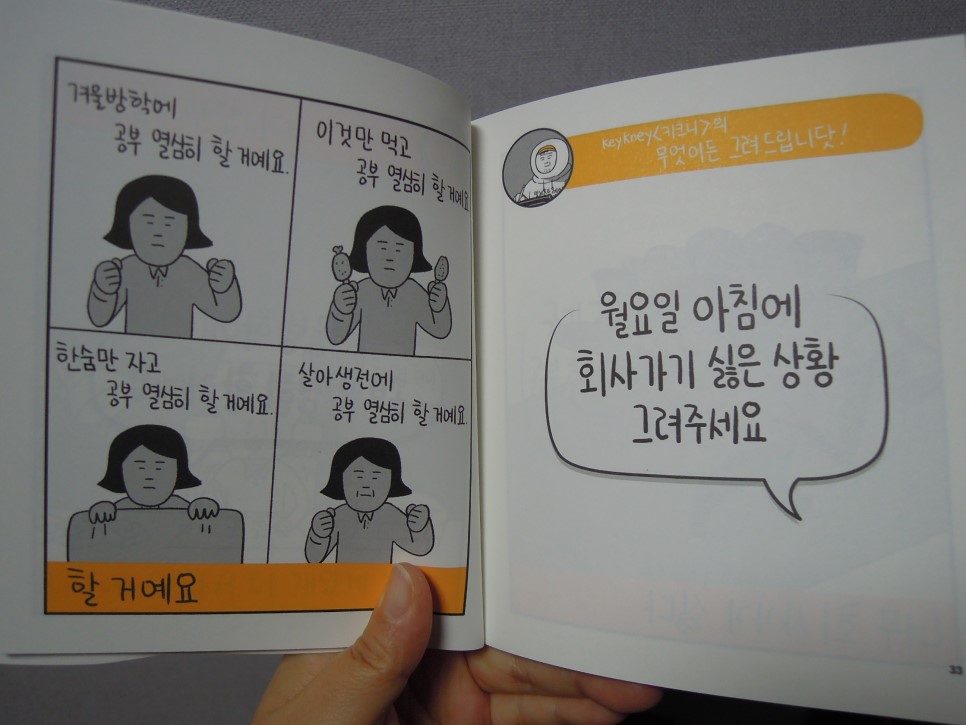 겨울방학에
공부 열심히 할 거예요.
이것만 먹고
공부 열심히 할 거예요
한숨만 자고
공부 열심히 할 거예요.
살아생전에
공부 열심히 할 거예요.
할 거예요
Keykney<키크니>의
무엇이든 그려드립니닷!
월요일 아침에
회사가기 싫은 상황
그려주세요
33